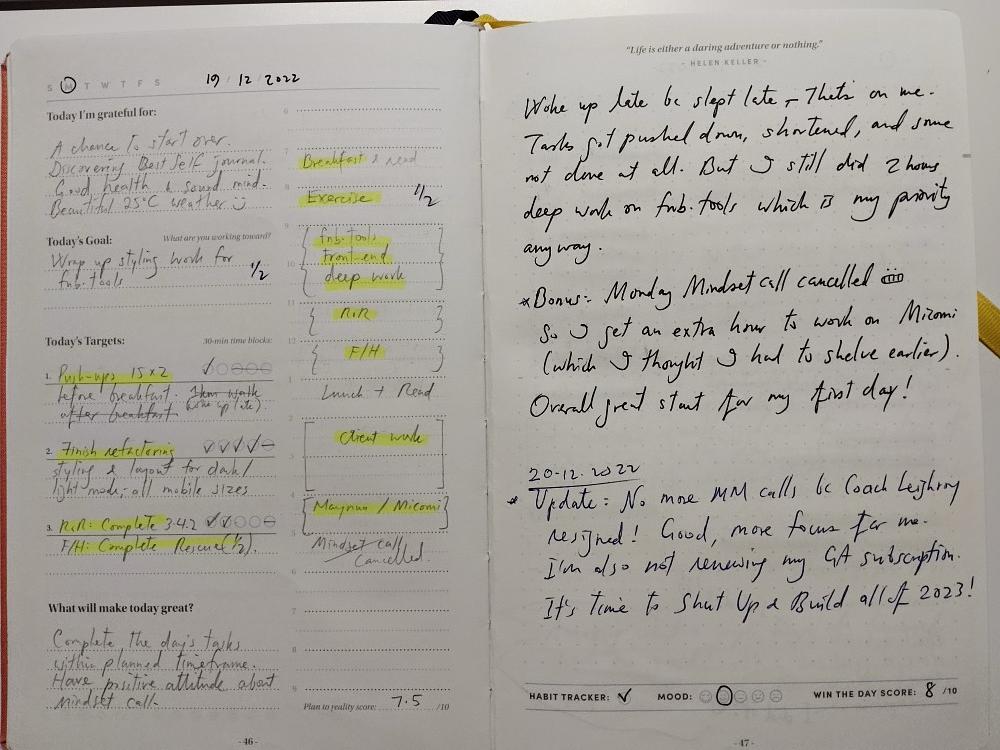 S M T W T F S 19 / 12 / 2022
Today I'm grateful for:
A chance to start over.
Discovering Best Self journal.
Good health & sound mind.
Beautiful 25°C weather
Today's Goal: What are you working toward?
Wrap up styling work for
fnb.tools 1/2
Today's Targets: 30-min time blocks:
1. Push-ups 15x2
before breakfast. 1km walk
after breakfast. (woke up late).
2. Finish refactoring
styling & layout for dark/
light mode; all mobile sizes
3. R:R: Complete 3.4.2
F/H: Complete Rescue (1/2).
What will make today great?
Complete the day's tasks
within planned timeframe.
Have positive attitude about
mindset call.
6
7
Breakfast & read
8
Exercise 1/2
9
fnb.tools
10
front-end
deep work
11
R:R
12
F/H
1
Lunch + Read
2
Client work
3
4
/ Micomi
5
Mindset call
Cancelled.
6
7
8
9
Plan to reality score: 7.5 /10
- 46 -
"Life is either a daring adventure or nothing."
- HELEN KELLER -
Woke up late bc slept late – Thats on me.
Tasks got pushed down, shortened, and some
not done at all. But I still did 2 hours
deep work on fnb.tools which is my priority
anyway.
*Bonus: Monday Mindset call cancelled
So I get an extra hour to work on Micomi
(which I thought I had to shelve earlier).
Overall great start for my first day!
20-12-2022
* Update: No more MM calls bc Coach
resigned! Good, more focus for me.
I'm also not renewing my GA subscription.
It's time to Shut Up & Build all of 2023!
HABIT TRACKER: ✓ MOOD: WIN THE DAY SCORE: 8 /10
- 47 -